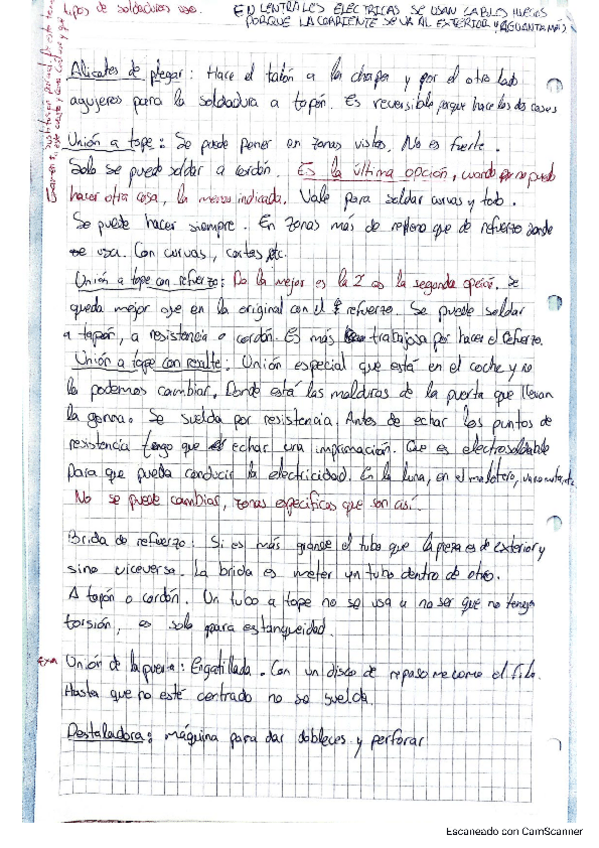 tipos de soldaduras use.
EN CENTRALES ELECTRICAS SE USAN CABLES HUECOS
PORQUE LA CORRIENTE SE VA AL EXTERIOR Y AGUANTA MÁS
Alicates de plegar: Hace el talón a la chapa y por el otro lado
agujeros para la soldadura a tapón. Es reversible porque hace las dos cosas
Unión a tope: Se puede poner en zonas vistas. No es fuerte.
Solo se puede soldar a cordón. Es la última opción, cuando no puedo
hacer otra cosa, la menos indicada. Vale para soldar curvas y todo.
Se puede hacer siempre. En zonas más de relleno que de refuerzo donde
se usa. Con curvas, cortes, etc.
Unión a tope con refuerzo: De la mejor es la 2 es la segunda opción. Se
queda mejor que en la original con el refuerzo. Se puede soldar
a tapón, a resistencia o cordón. Es más trabajosa por hacer el refuerzo.
Unión a tope con resalte: Unión especial que está en el coche y no
la podemos cambiar. Donde está las molduras de la puerta que llevan
la goma. Se suelda por resistencia. Antes de echar los puntos de
resistencia tengo que echar una imprimación. Que es electrosoldable
para que pueda conducir la electricidad. En la luna, en el maletero,
No se puede cambiar, zonas específicas que son así.
Brida de refuerzo: Si es más grande el tubo que la pieza es de exterior y
sino viceversa. La brida es meter un tubo dentro de otro.
A tapón o cordón. Un tubo a tope no se usa a no ser que no tenga
torsión, es solo para estanqueidad.
Exa Unión de la puerta: Engatillada. Con un disco de repaso me como el filo.
Hasta que no esté centrado no se suelda.
Destaladora: máquina para dar dobleces y perforar
Escaneado con CamScanner